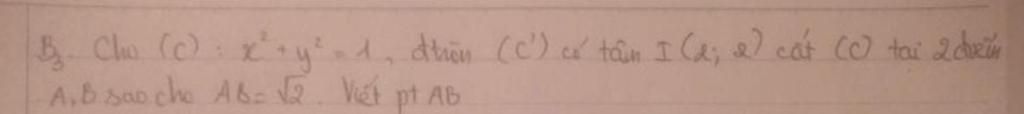 B3. Cho (C) : x² + y² = 1, đtròn (C') có tâm I (2; 2) cắt (C) tại 2 điểm
A, B sao cho AB = √2. Viết pt AB